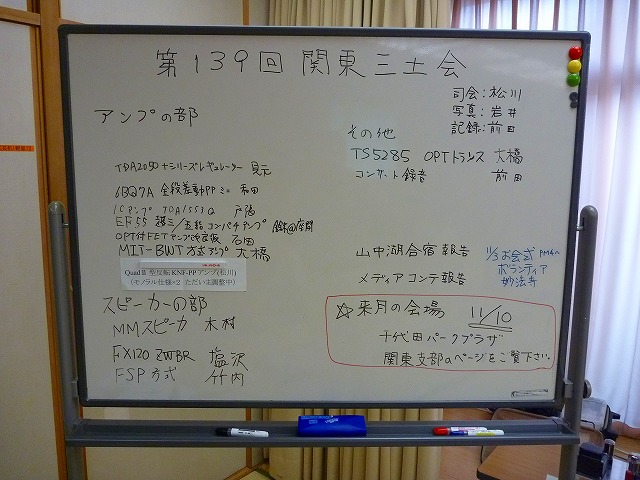 第139回 関東三土会
司会:松川
写真:岩井
記録:前田
アンプの部
TDA2050 +シリーズレギュレーター
6BQ7A 全段差動PPミニ 和田
ICアンプ TDA1553Q 戸張
EF56 超三/五結 コンパチアンプ 鈴木@座間
OPT付FETアンプ改定版 石田
MIT-BWT 方式アンプ 大橋
Quad II 型反転KNF-PPアンプ(松川)
(モノラル仕様×2 ただいま調整中)
スピーカーの部
MMスピーカ 木村
FX120 ZWBR 塩沢
FSP方式 竹内
その他
TS5285 OPTトランス 大橋
コンサート録音 前田
山中湖合宿報告
11/3お会式 PM4~
ボランティア
妙法寺
メディアコンテ報告
☆来月の会場 11/10
千代田パークプラザ
関東支部のページをご覧下さい。